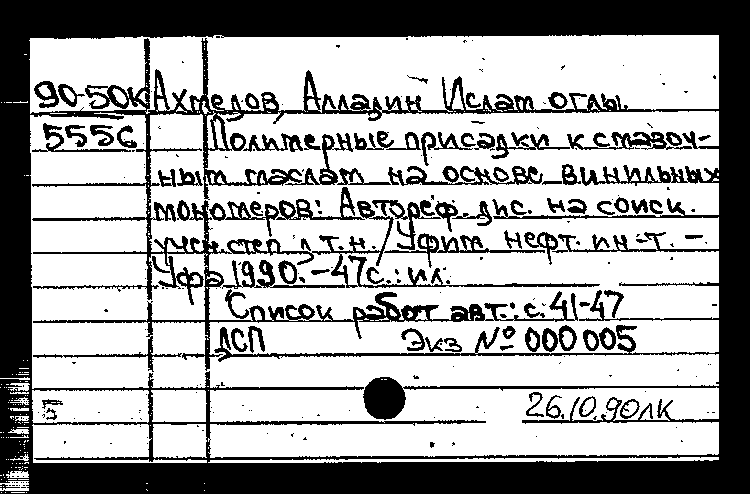 90-50К Ахмедов, Алладин Ислам оглы.
5556 Полимерные присадки к смазоч-
ным маслам на основе винильных
мономеров: Автореф. дис. на соиск.
учен. степ. д.т.н. / Уфим. нефт. ин-т. –
Уфа, 1990. – 47с.: ил.
Список работ авт.: с. 41-47
ДСП Экз № 000005
Б 26.10.90ЛК